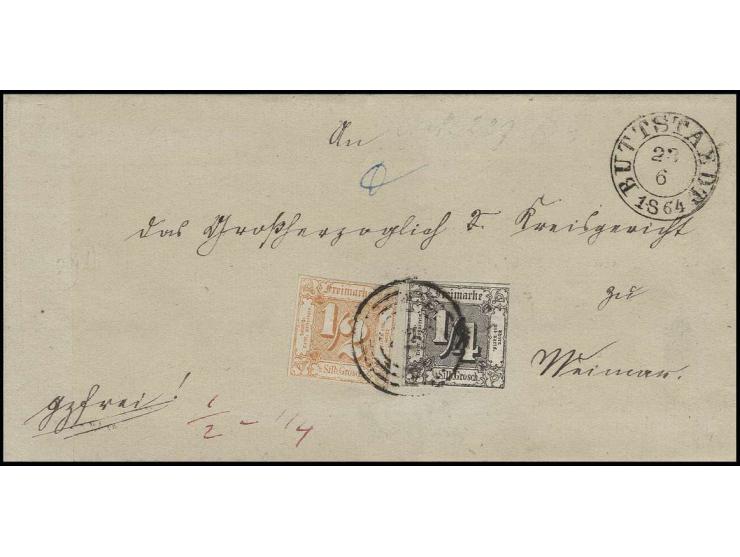 An
BUTTSTAEDT
23
6
1864
das Großherzoglich S. Kreisgericht
zu
Weimar.
Freimarke
1/2
Silb. Grosch
Freimarke
1/4
Silb. Grosch
gzfrei!
1/2 – 1/4